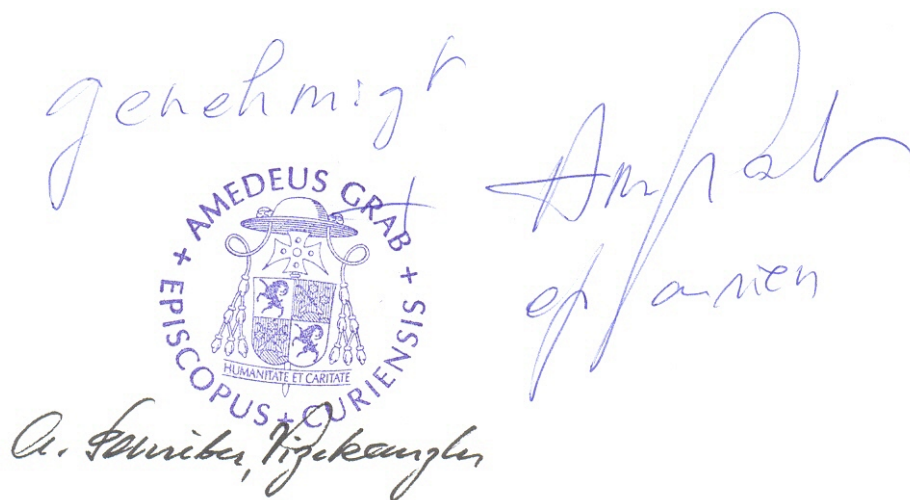 genehmigt
+ Am Grab
ep Curien
+ AMEDEUS GRAB + EPISCOPUS + CURIENSIS
HUMANITATE ET CARITATE
a. Schreiber, Vizekanzler